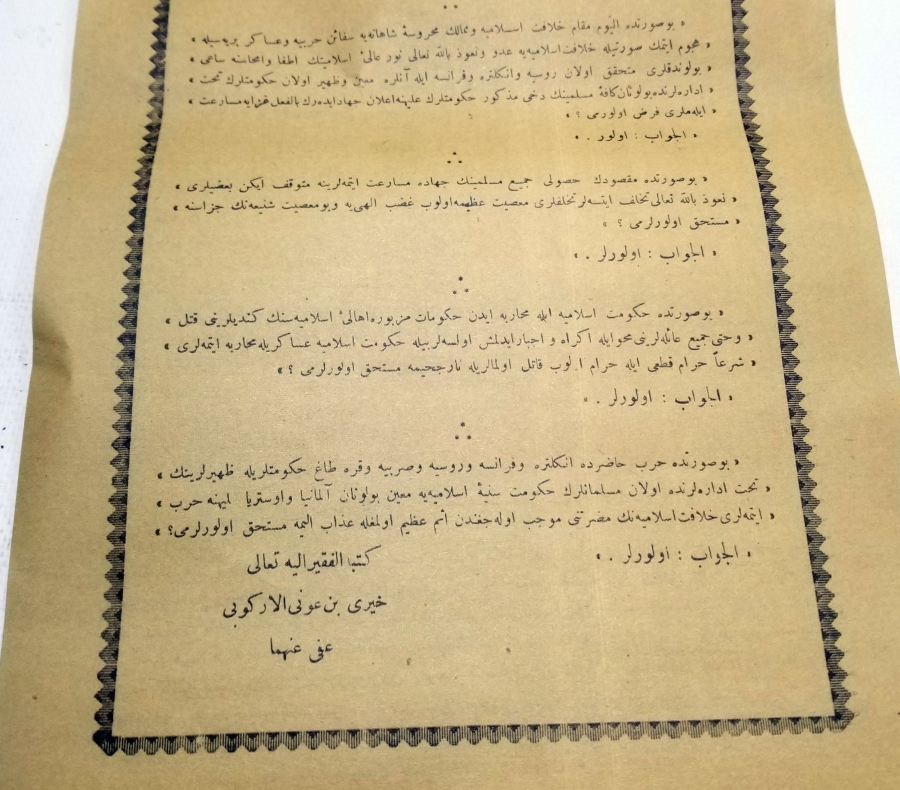 « بوصورتده اليوم مقام خلافت اسلاميه وممالك محروسهٔ شاهانه‌يه سفائن حربيه وعساكر بريه‌سيله »
« هجوم ايتمك صورتيله خلافت اسلاميه‌يه عدو ونعوذ بالله تعالى نور عالئ اسلاميتك اطفا وامحاسنه ساعى »
« بولوندقلرى متحقق اولان روسيه وانكلتره وفرانسه ايله آنلره معين وظهير اولان حكومتلرك تحت »
« اداره‌لرنده بولونان كافهٔ مسلمينك دخى مذكور حكومتلرك عليهنه اعلان جهاد ايده‌رك بالفعل غزايه مسارعت »
« ايله‌ملرى فرض اولورمى ؟ »
« الجواب : اولور . »
« بوصورتده مقصودك حصولى جميع مسلمينك جهاده مسارعت ايتمه‌لرينه متوقف ايكن بعضيلرى »
« نعوذ بالله تعالى تخلف ايتسه‌لر تخلفلرى معصيت عظيمه اولوب غضب الهى‌يه وبومعصيت شنيعه‌نك جزاسنه »
« مستحق اولورلرمى ؟ »
« الجواب : اولورلر . »
« بوصورتده حكومت اسلاميه ايله محاربه ايدن حكومات مزبوره اهالئ اسلاميه‌سنك كنديلرينى قتل »
« وحتى جميع عائله‌لرينى محو ايله اكراه و اجبار ايدلمش اولسه‌لربيله حكومت اسلاميه عساكريله محاربه ايتمه‌لرى »
« شرعاً حرام قطعى ايله حرام اولوب قاتل اولمالريله نارجحيمه مستحق اولورلرمى ؟ »
« الجواب : اولورلر . »
« بوصورتده حرب حاضرده انكلتره وفرانسه وروسيه وصربيه وقره طاغ حكومتلريله ظهيرلرينك »
« تحت اداره‌لرنده اولان مسلمانلرك حكومت سنيهٔ اسلاميه‌يه معين بولونان آلمانيا واوستريا عليهنه حرب »
« ايتمه‌لرى خلافت اسلاميه‌نك مضرتنى موجب اوله‌جغندن اثم عظيم اولمغله عذاب اليمه مستحق اولورلرمى؟ »
« الجواب : اولورلر . »
كتبه الفقير اليه تعالى
خيرى بن عونى الاركوبى
عفى عنهما